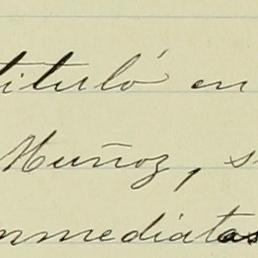 tituló en
Muñoz, s
nmediatas